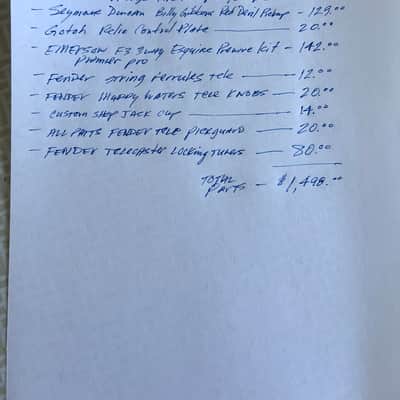 - Seymour Duncan Billy Gibbons Red Devil Pickup - 129.00
- Gotoh Relic Control Plate — 20.00
- EMERSON F3 3way Esquire Prewire Kit - 142.00
premier pro
- Fender string ferrules tele — 12.00
- FENDER Muddy WATERS TELE KNOBS — 20.00
- CUSTOM SHOP JACK CUP — 14.00
- ALL PARTS FENDER TELE pickguard — 20.00
- FENDER TELECASTER Locking Tuners — 80.00
TOTAL
PARTS - $1,498.00